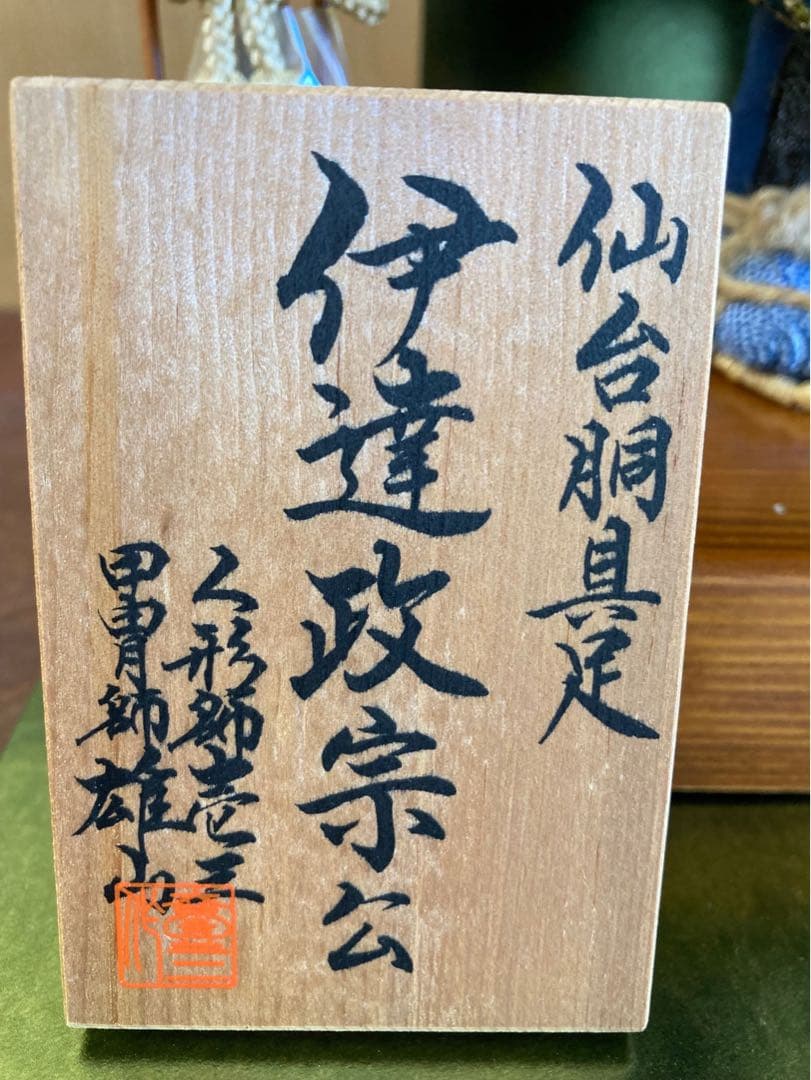 仙台胴具足
伊達政宗公
人形師壱三
甲冑師雄山